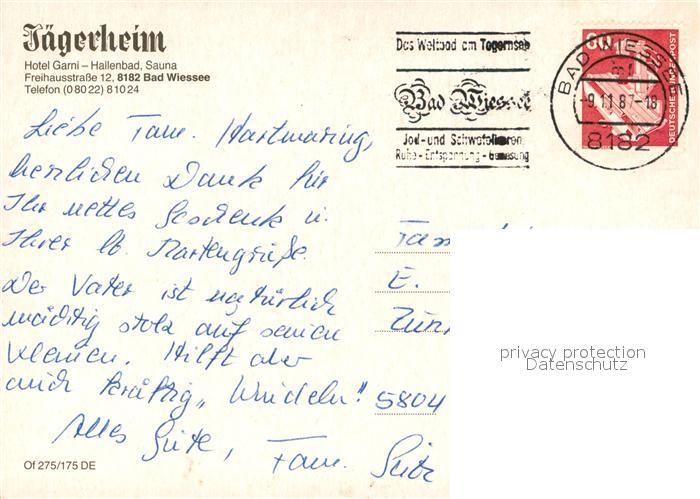 Jägerheim
Hotel Garni – Hallenbad, Sauna
Freihausstraße 12, 8182 Bad Wiessee
Telefon (0 80 22) 8 10 24
Das Weltbad am Tegernsee
Bad Wiessee
Jod- und Schwefelquellen
Ruhe - Entspannung - Genesung
BAD WIESSEE
-9.11.87-18
8182
60
DEUTSCHE BUNDESPOST
Liebe Fam. Hartmaring,
herzlichen Dank für
Ihr nettes Geschenk u.
Ihrer lb. Kartengrüße.
Der Vater ist natürlich
mächtig stolz auf seinen
Kleinen. Hilft aber
auch kräftig „Windeln"
Alles Gute, Fam. Seitz
Fam
E.
Zün
5804
privacy protection
Datenschutz
Of 275/175 DE